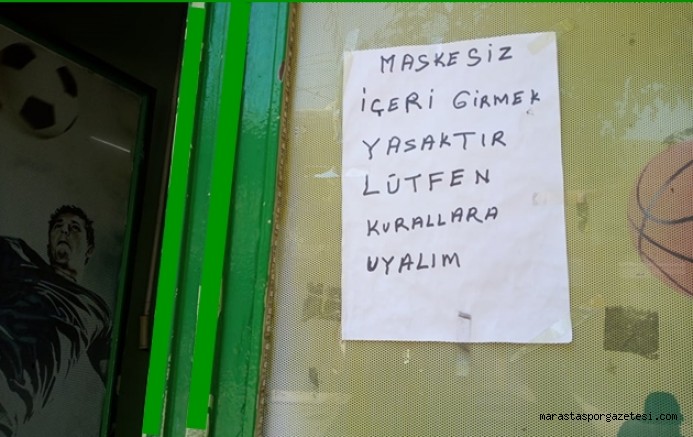 MASKESİZ
İÇERİ GİRMEK
YASAKTIR
LÜTFEN
KURALLARA
UYALIM
marastasporgazetesi.com